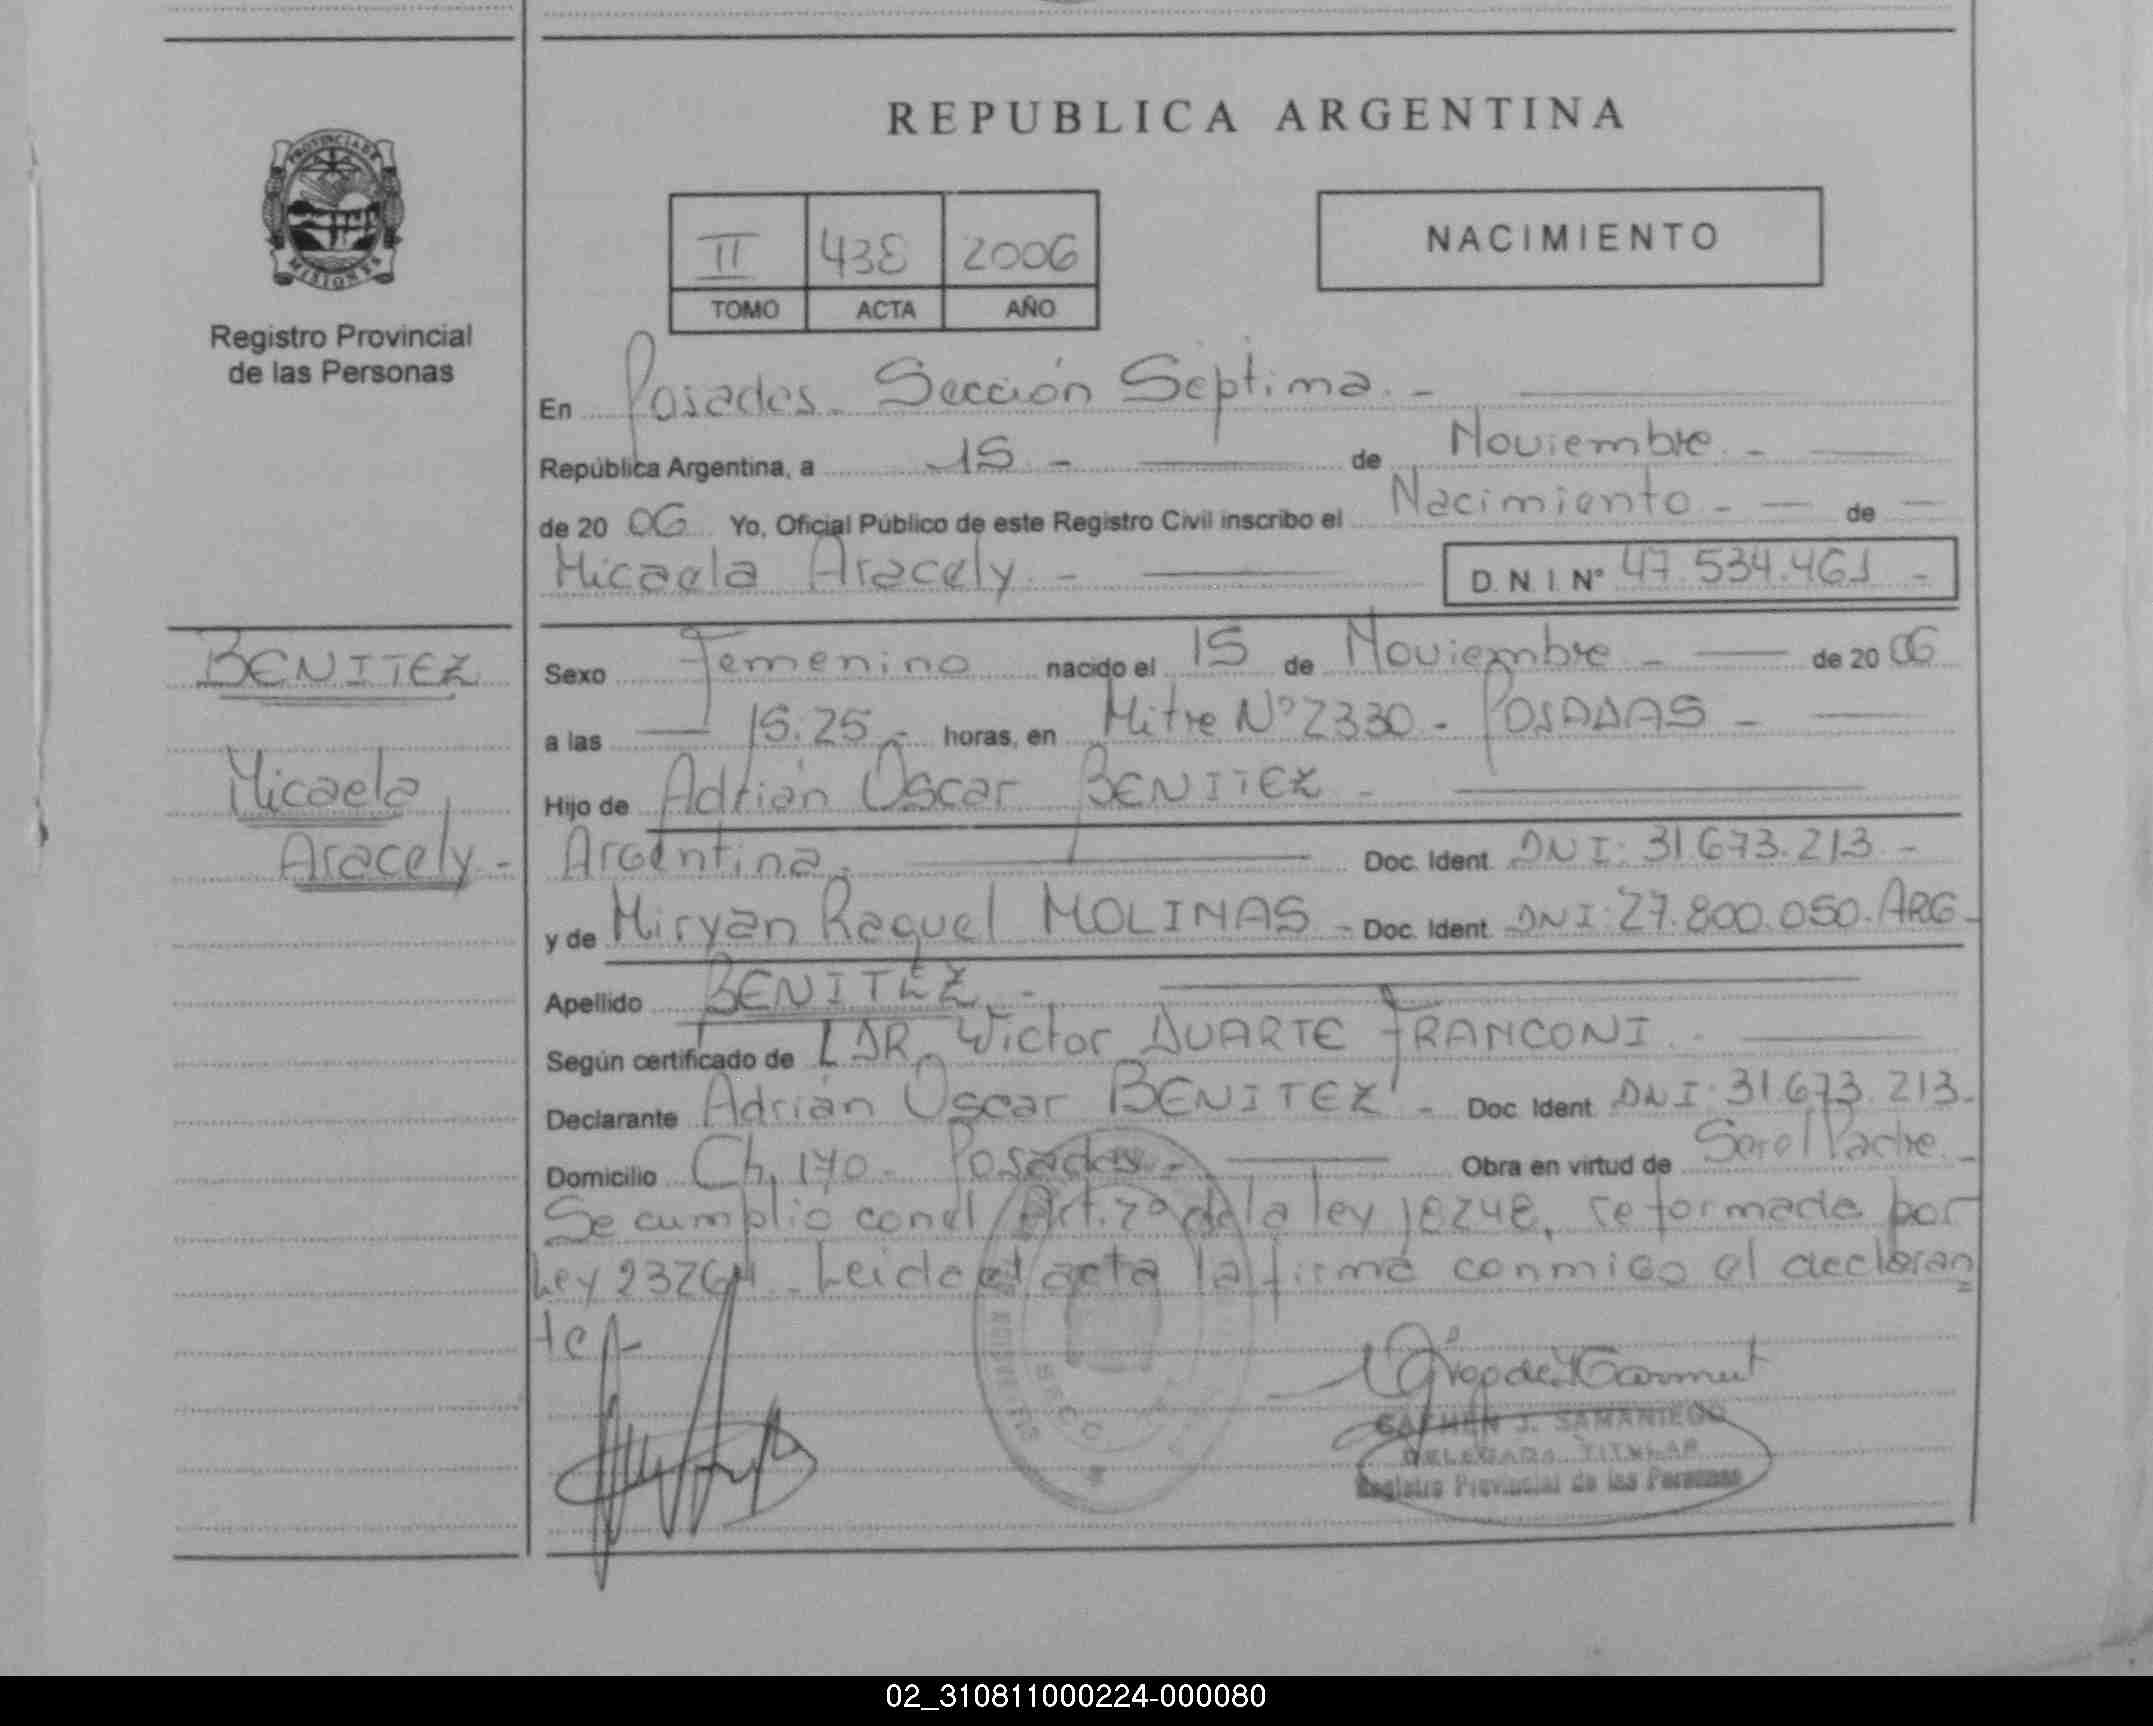 REPUBLICA ARGENTINA
PROVINCIA DE
MISIONES
Registro Provincial
de las Personas
II 438 2006
TOMO ACTA AÑO
NACIMIENTO
En Posadas. Sección Séptima. -
República Argentina, a 15 - de Noviembre. -
de 20 06 Yo, Oficial Público de este Registro Civil inscribo el Nacimiento - de
Micaela Aracely. - D. N. I. N° 47.534.461 -
BENITEZ
Micaela
Aracely -
Sexo Femenino nacido el 15 de Noviembre - de 20 06
a las 15:25 - horas, en Mitre Nº 2330 - POSADAS -
Hijo de Adrián Oscar BENITEZ -
Argentina. - Doc. Ident. DNI: 31673.213 -
y de Miryan Raquel MOLINAS - Doc. Ident. DNI: 27.800.050. ARG -
Apellido BENITEZ. -
Según certificado de DR. Wictor DUARTE FRANCONI. -
Declarante Adrián Oscar BENITEZ - Doc. Ident. DNI: 31673.213 -
Domicilio Ch. 170 - Posadas. - Obra en virtud de Padre. -
Se cumplio con el Art. 2º de la ley 18248, reformada por
Ley 23264. - Leida el acta la firma conmigo el declaran
te -
CARMEN J. SAMANIEGO
DELEGADA TITULAR
Registro Provincial de las Personas
02_310811000224-000080